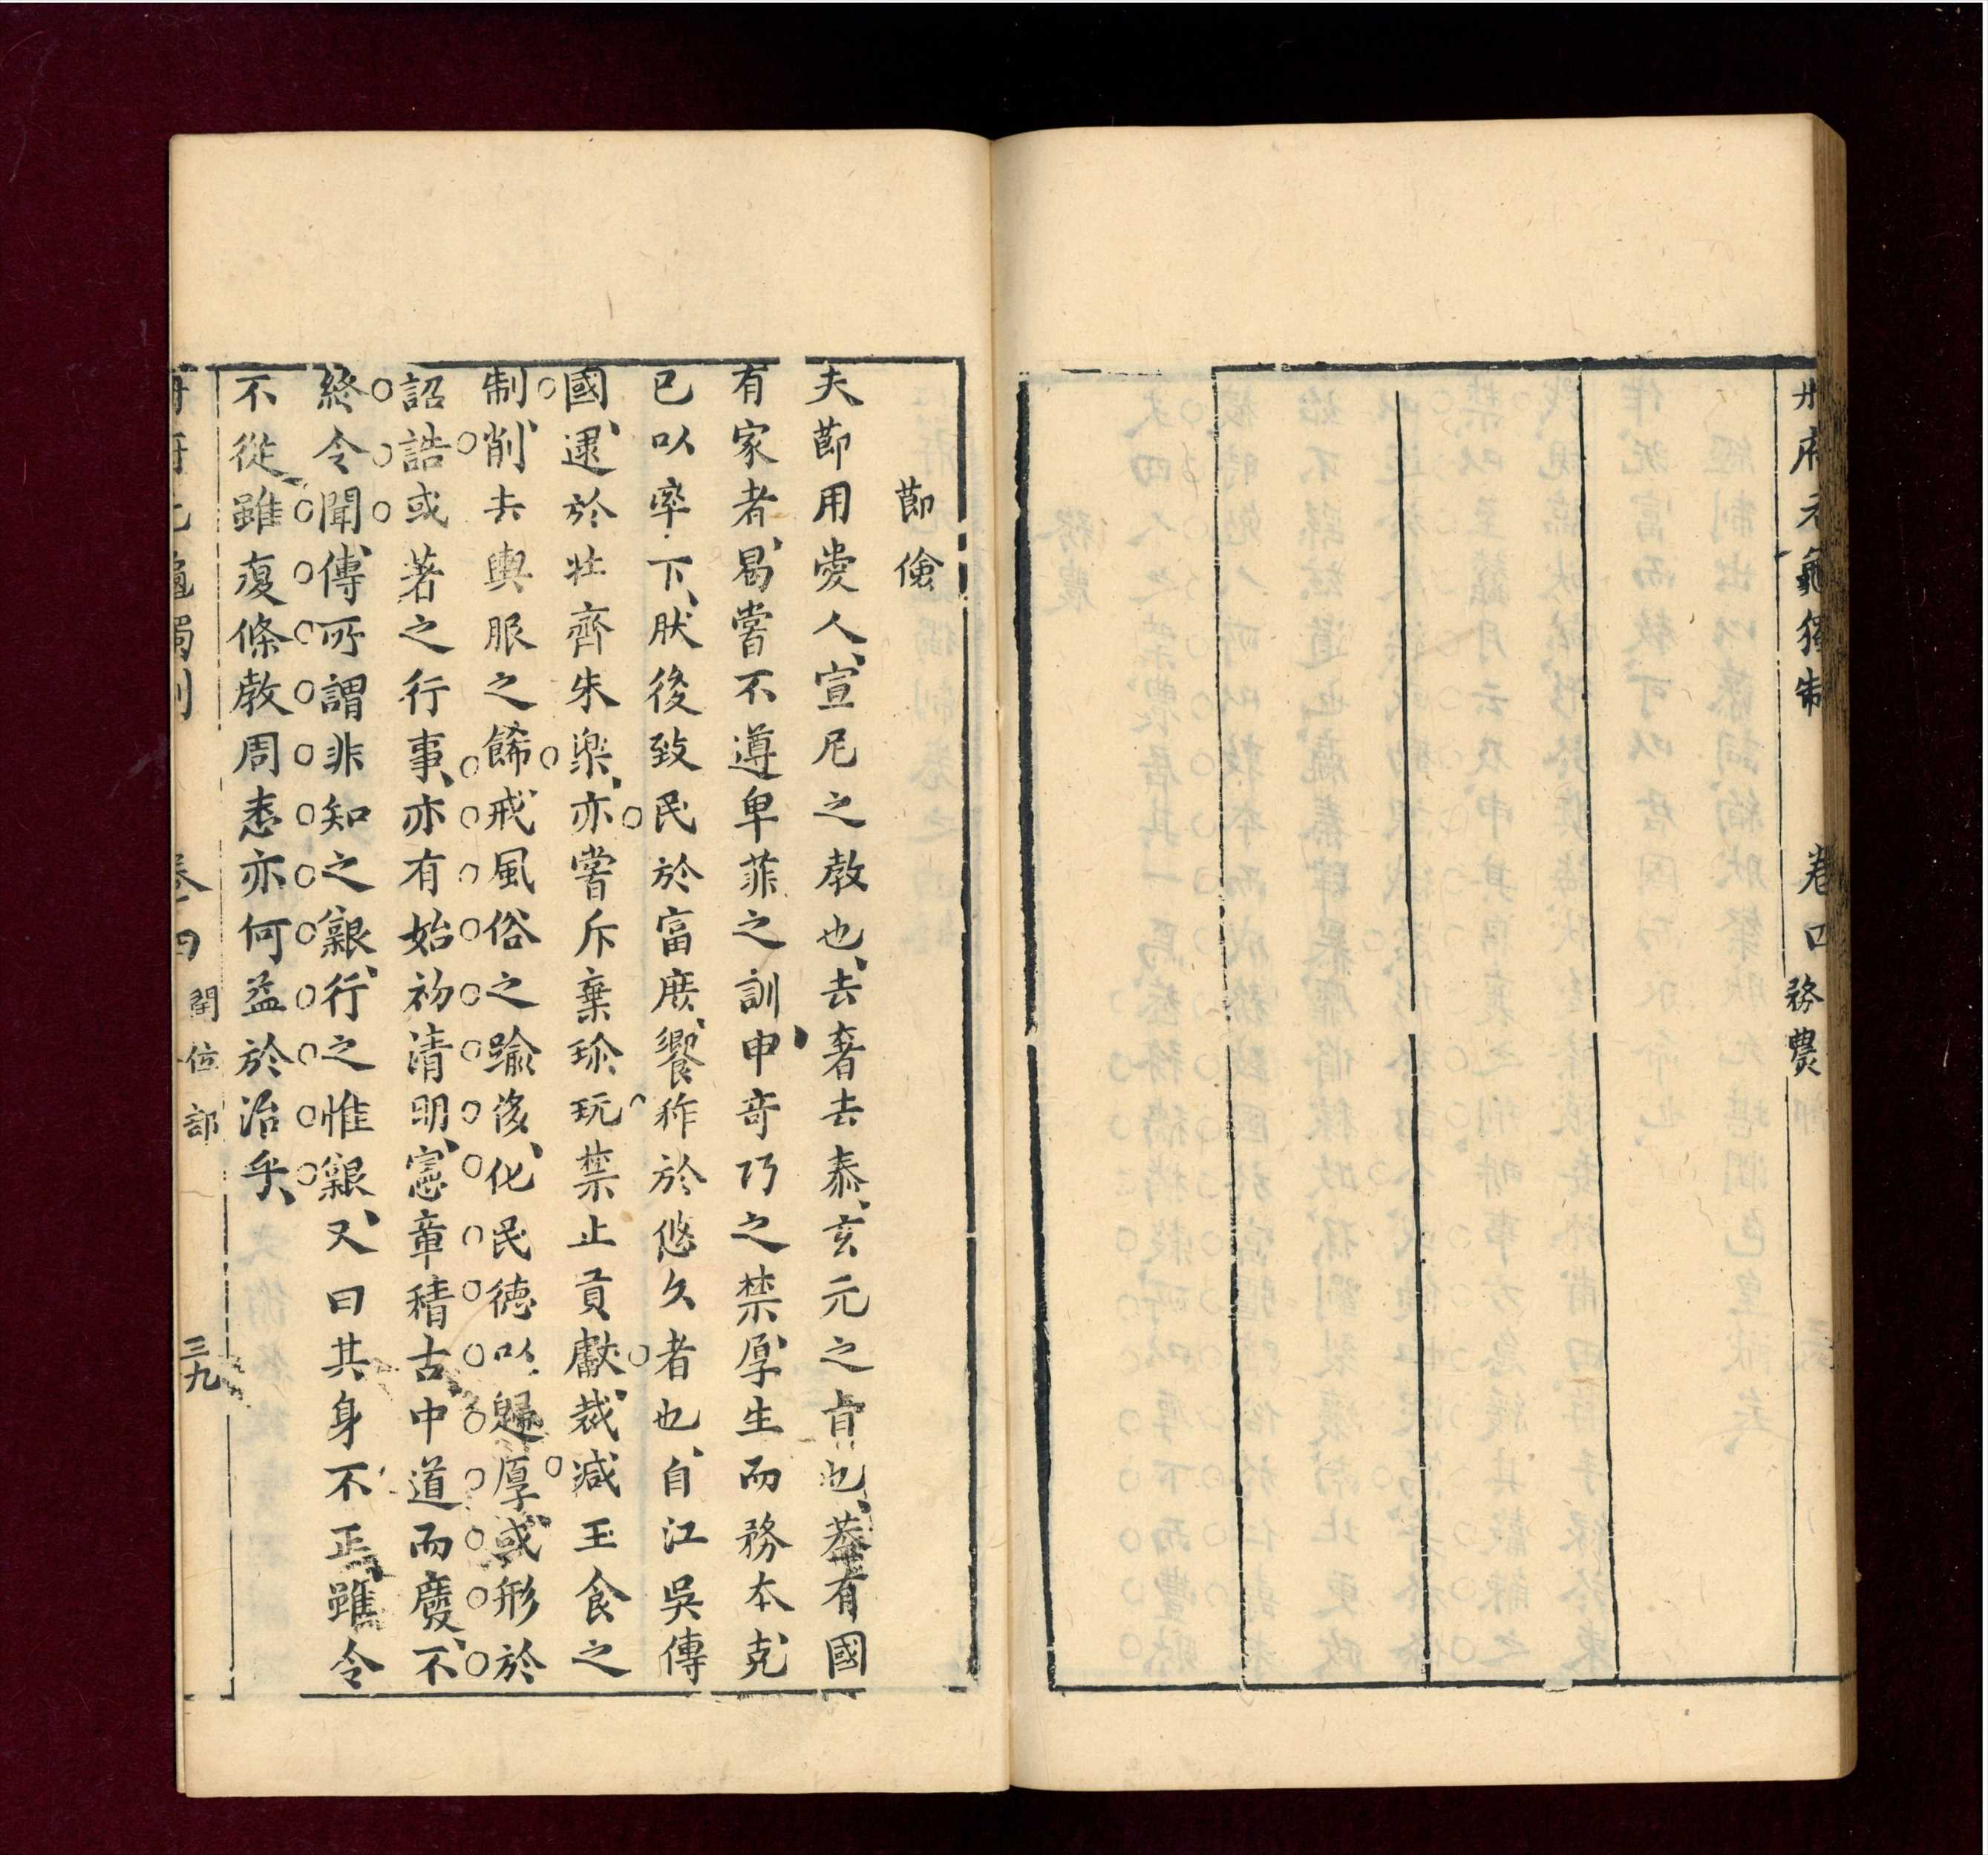 冊府元龜獨制 卷四 務農
節儉
夫節用愛人宣尼之教也去奢去泰玄元之旨也葢有國
有家者曷嘗不遵卑菲之訓申奇巧之禁厚生而務本克
已以率下肰後致民於富庶饗祚於悠久者也自江吳傳
國逮於壯齊朱梁亦嘗斥棄珍玩禁止貢獻裁减玉食之
制削去輿服之餙戒風俗之踰侈化民徳以趨厚或形於
詔誥或著之行事亦有始初清明憲章稽古中道而廢不
終令聞傳所謂非知之艱行之惟艱又曰其身不正雖令
不從雖復條教周悉亦何益於治乎
冊府元龜獨制 卷四 閏位部 三九